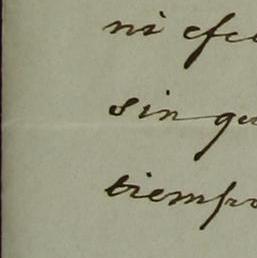 ni efec
sin qu
tiempo